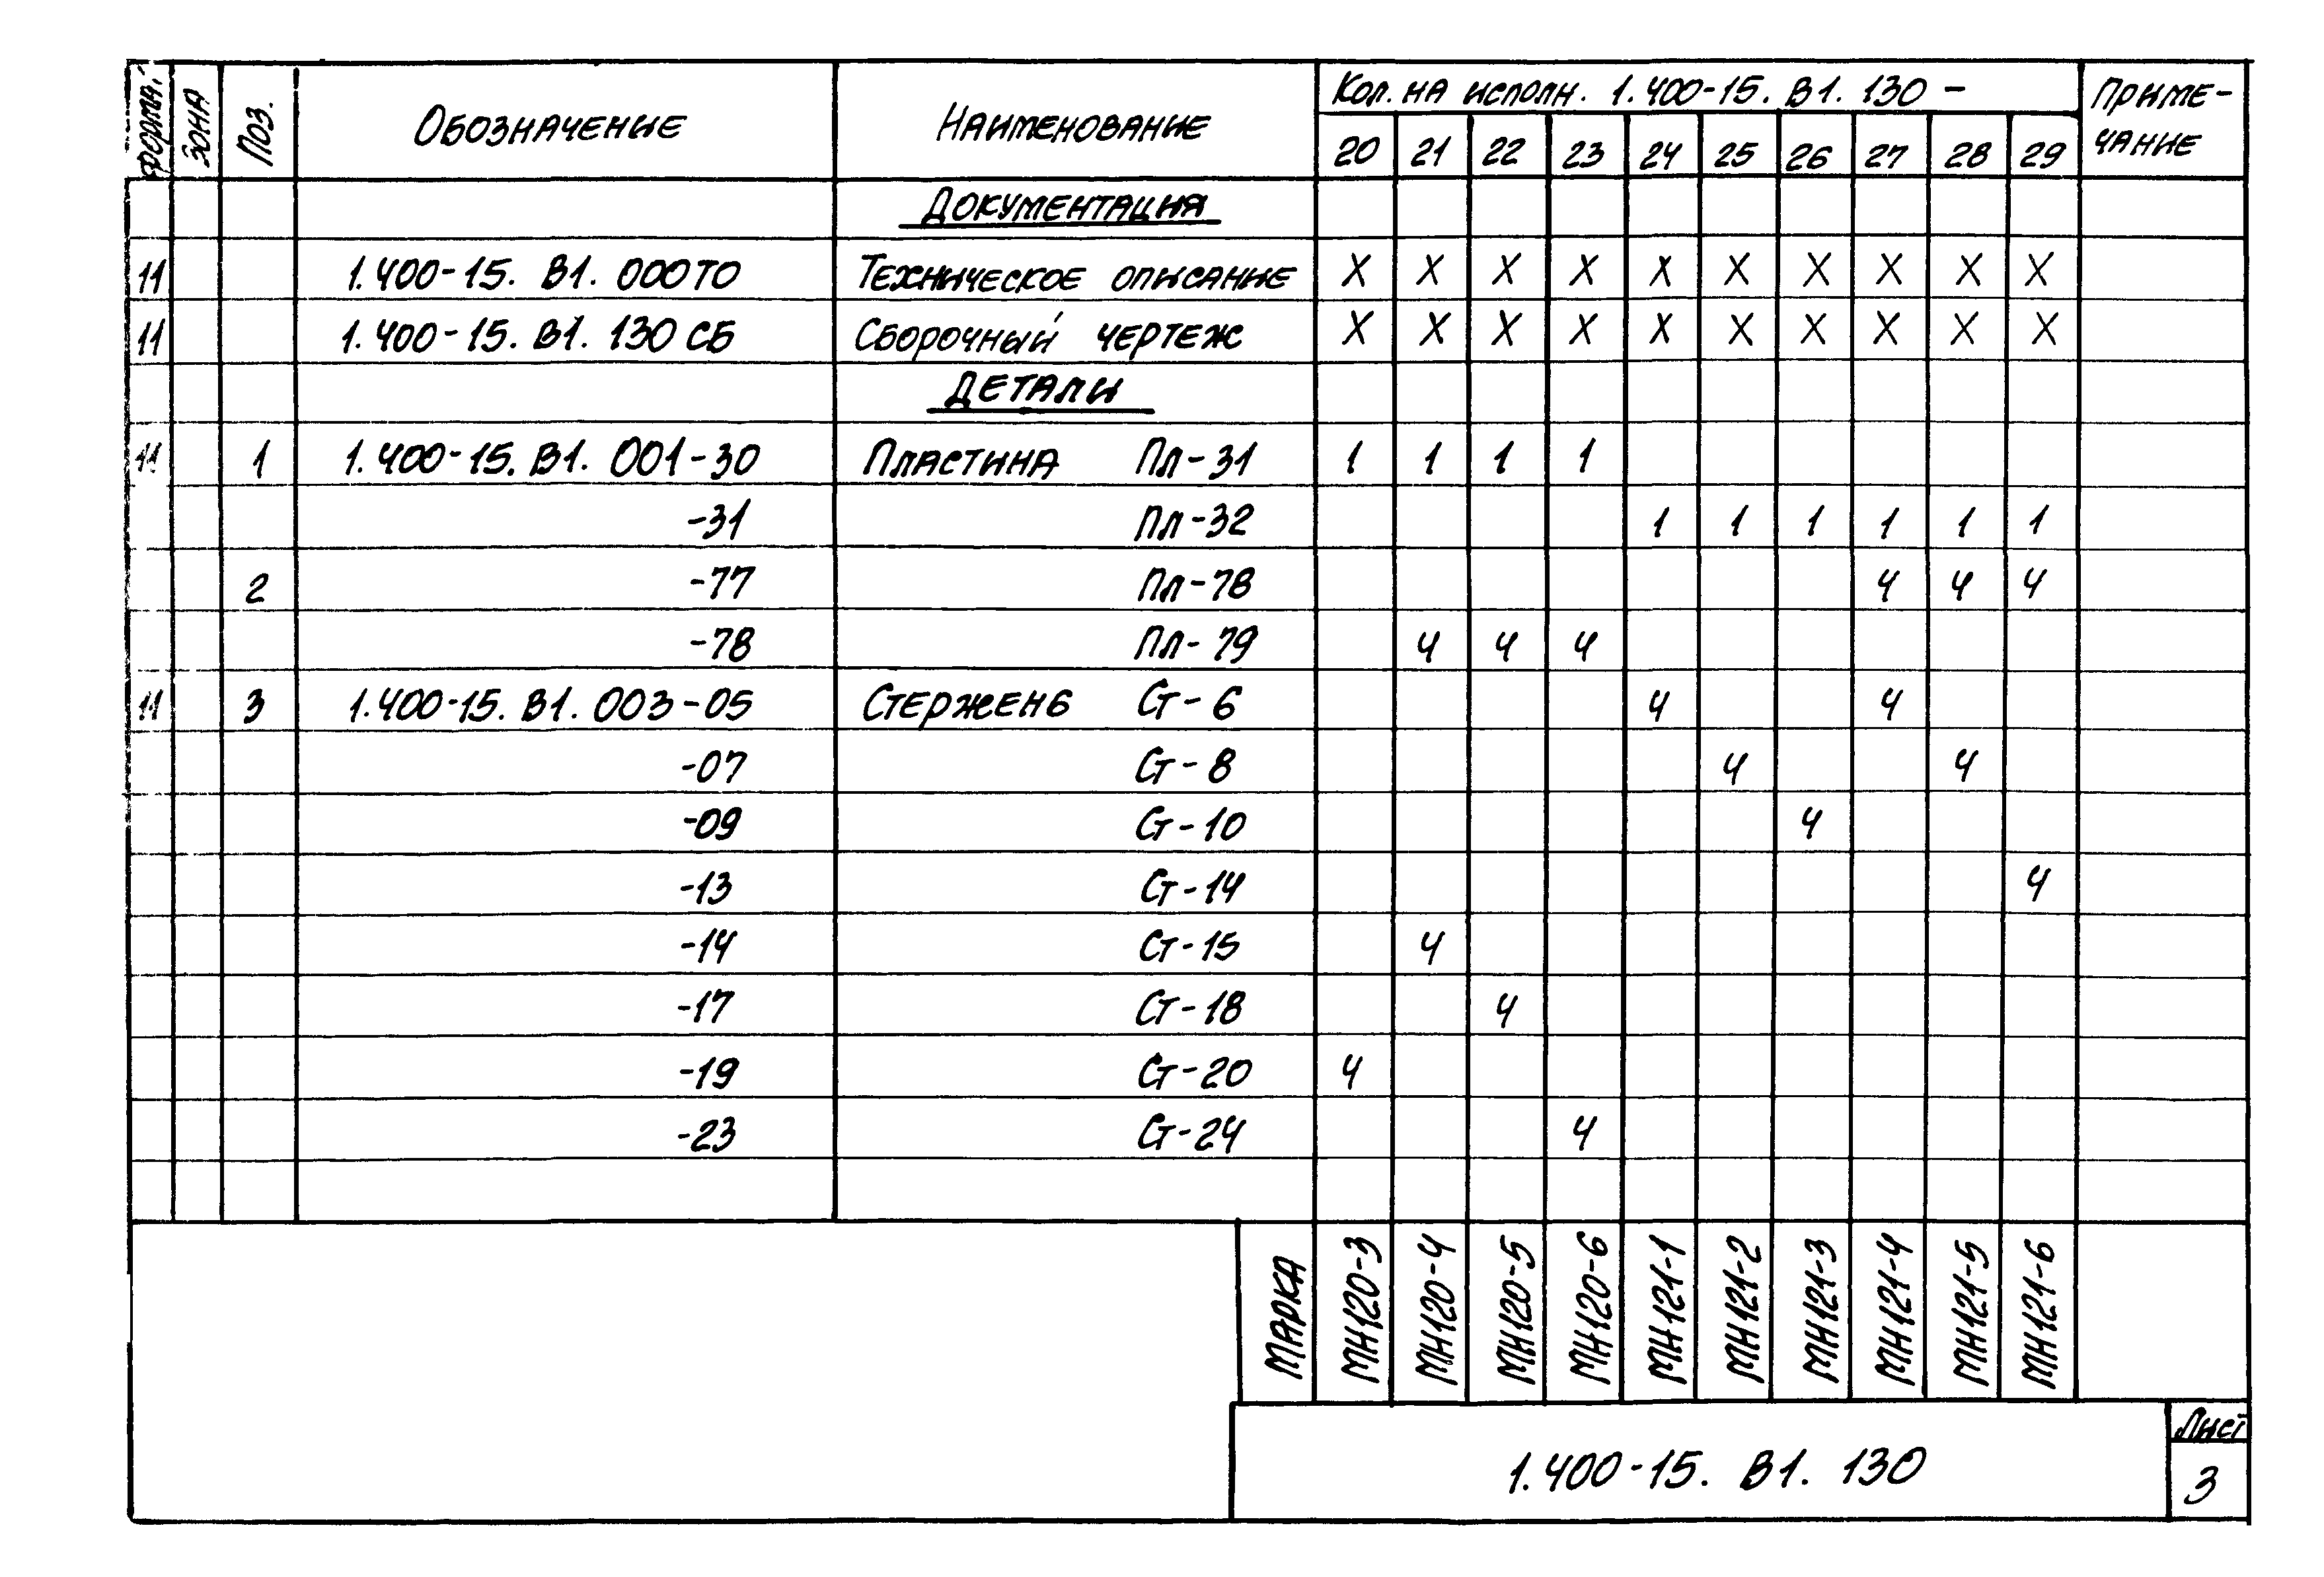 Формат Зона Поз. Обозначение Наименование Кол. на исполн. 1.400-15. В1. 130 - Приме-
чание
20 21 22 23 24 25 26 27 28 29
Документация
11 1.400-15. В1. 000ТО Техническое описание X X X X X X X X X X
11 1.400-15. В1. 130 СБ Сборочный чертеж X X X X X X X X X X
Детали
11 1 1.400-15. В1. 001-30 Пластина Пл-31 1 1 1 1
-31 Пл-32 1 1 1 1 1 1
2 -77 Пл-78 4 4 4
-78 Пл-79 4 4 4
11 3 1.400-15. В1. 003-05 Стержень Ст-6 4 4
-07 Ст-8 4 4
-09 Ст-10 4
-13 Ст-14 4
-14 Ст-15 4
-17 Ст-18 4
-19 Ст-20 4
-23 Ст-24 4
Марка МН120-3 МН120-4 МН120-5 МН120-6 МН121-1 МН121-2 МН121-3 МН121-4 МН121-5 МН121-6
1.400-15. В1. 130
Лист
3